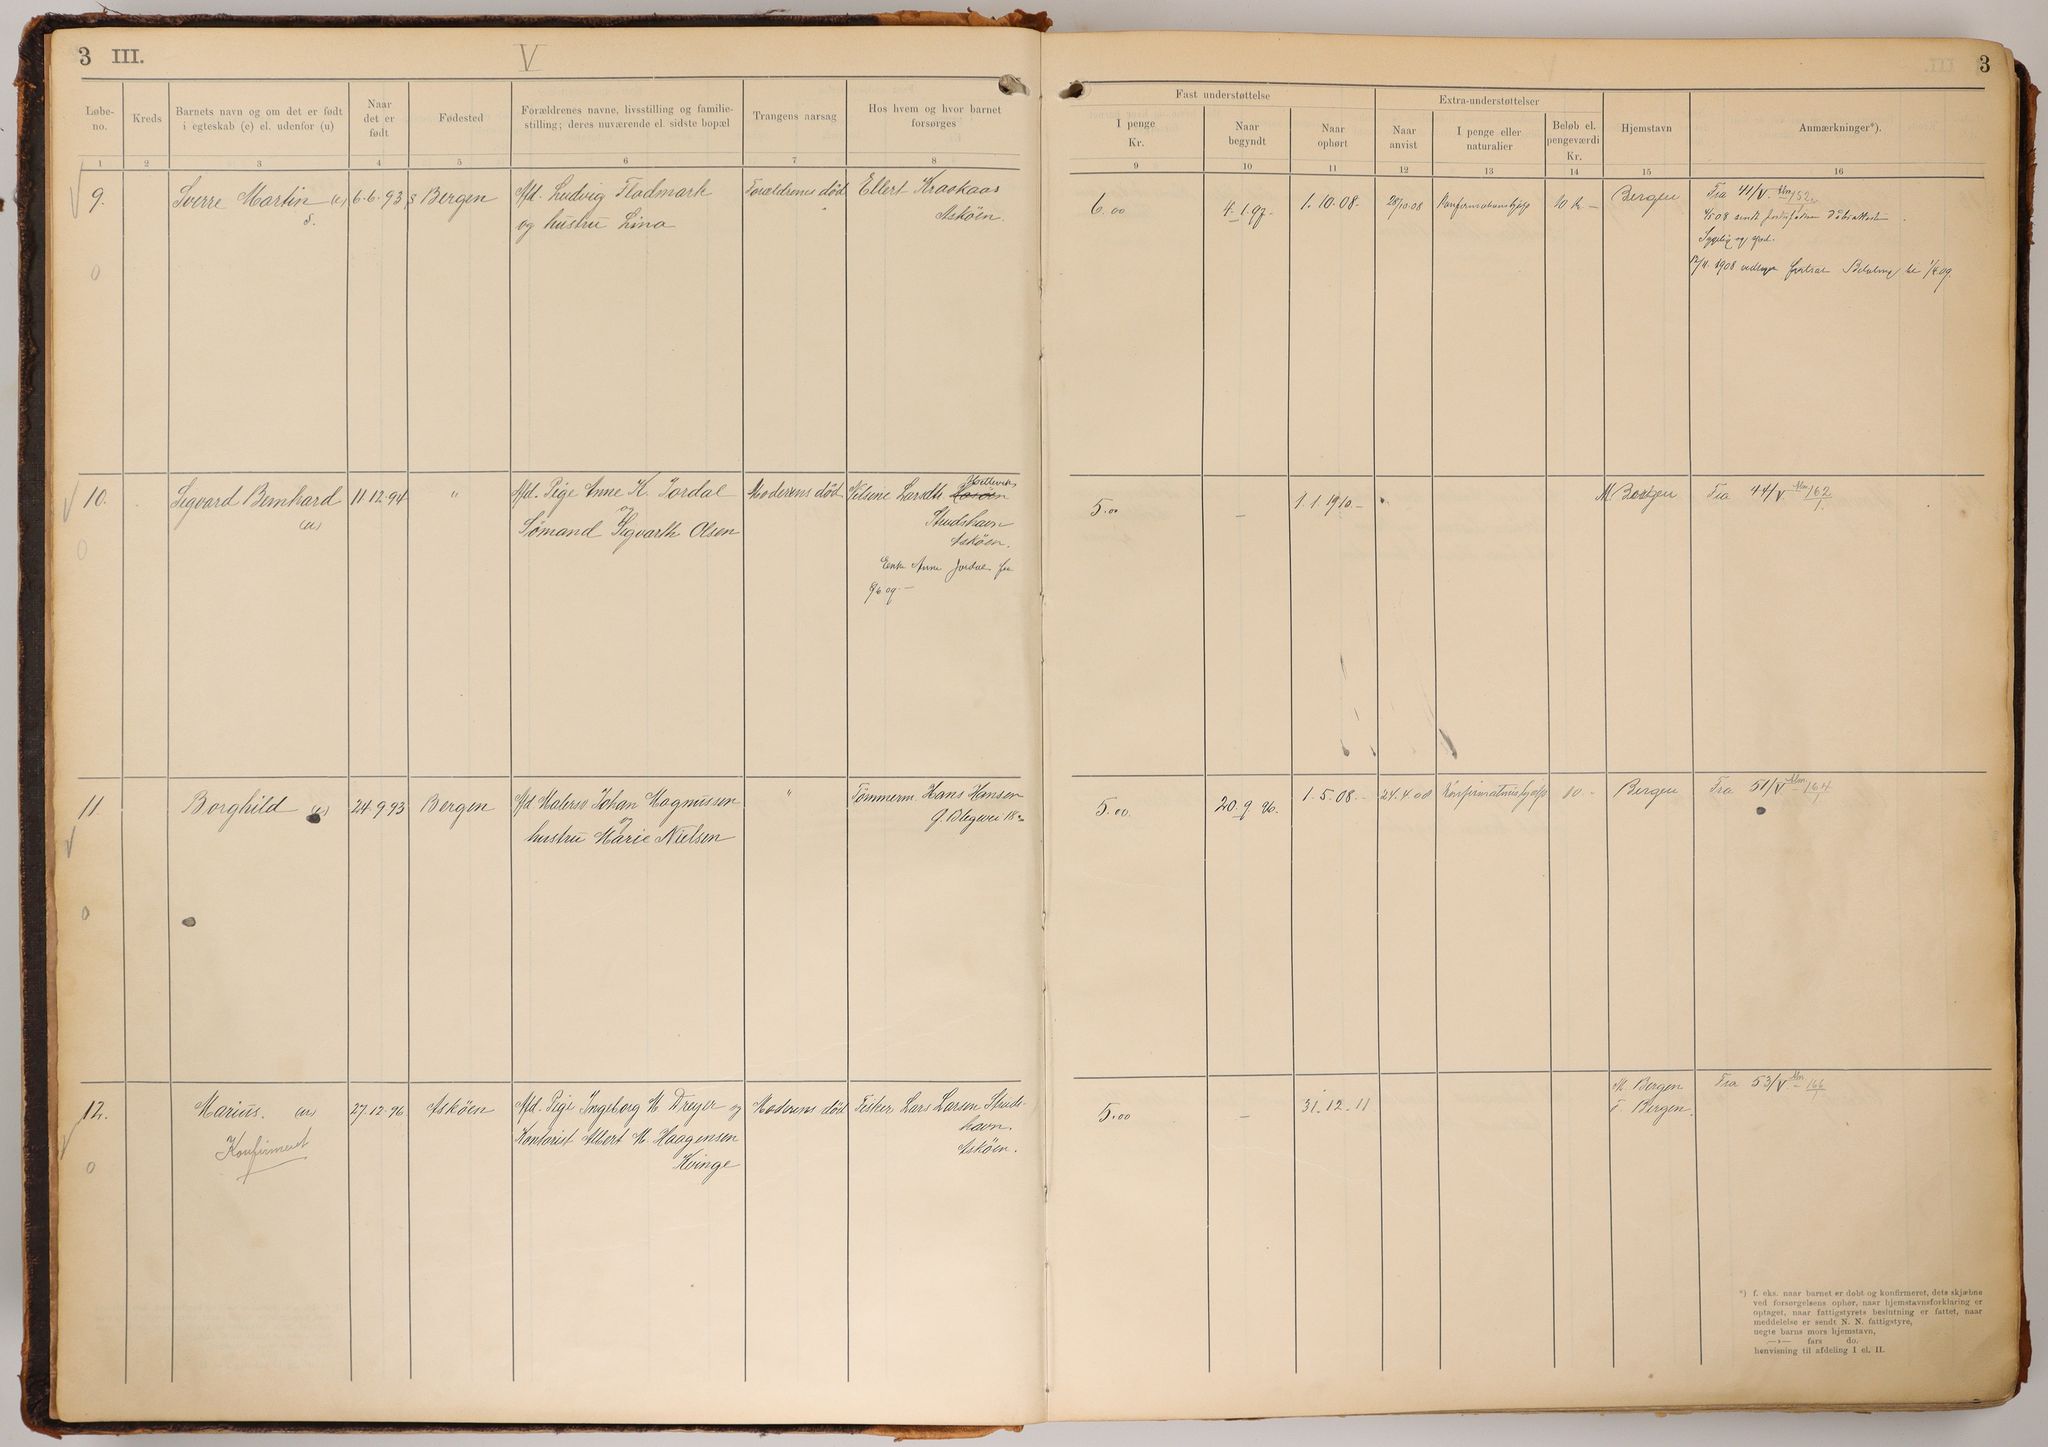 3 III.
V
3
Løbe-
no.
Kreds
Barnets navn og om det er født
i egteskab (e) el. udenfor (u)
Naar
det er
født
Fødested
Forældrenes navne, livsstilling og familie-
stilling; deres nuværende el. sidste bopæl
Trangens aarsag
Hos hvem og hvor barnet
forsørges
Fast understøttelse
I penge
Kr.
Naar
begyndt
Naar
ophørt
Extra-understøttelser
Naar
anvist
I penge eller
naturalier
Beløb el.
pengeværdi
Kr.
Hjemstavn
Anmærkninger*).
1 2 3 4 5 6 7 8 9 10 11 12 13 14 15 16
9. Sverre Martin (e) 6.6.93 Bergen Afd. Ludvig Fladmark Forældrenes død Ellert Kraakaas 6.00 4.1.97. 1.10.08. 28/10.08 Konfirmationshjelp 10 kr - Bergen Fra 41/V. Alm 152
og hustru Lina Askøen.
Sygelig og
1908 Betaling til 1/4.09
0
10. Sigvard Bernhard 11.12.94 " Afd. Pige Anne K. Jordal Moderens død 5.00 - 1.1.1910.- M Bergen Fra 44/V Alm 162
(u) og
Sømand Sigvarth Olsen Studshavn
Askøen.
Enke Anne Jordal fra
9/6 09 -
0
11. Borghild (e) 24.9.93 Bergen Afd Maler Johan Magnussen " Tømmerm. Hans Hansen 5.00. 20.9.96. 1.5.08.- 24.4.08 Konfirmationshjelp 10 - Bergen Fra 51/V Alm 164
og
hustru Marie Nielsen
0
12. Marius. (u) 27.12.96 Askøen Afd. Pige Ingeborg M Dreyer og Moderens død Fisker Lars Larsen Studs- 5.00 - 31.12.11 M. Bergen Fra 53/V Alm 166
Kontorist Albert M. Haagensen havn. F. Bergen.
Konfirmeret
Kvinge Askøen.
0
*) f. eks. naar barnet er døbt og konfirmeret, dets skjæbne
ved forsørgelsens ophør, naar hjemstavnsforklaring er
optaget, naar fattigstyrets beslutning er fattet, naar
meddelelse er sendt N. N. fattigstyre,
uegte barns mors hjemstavn,
—»— fars do.
henvisning til afdeling I el. II.